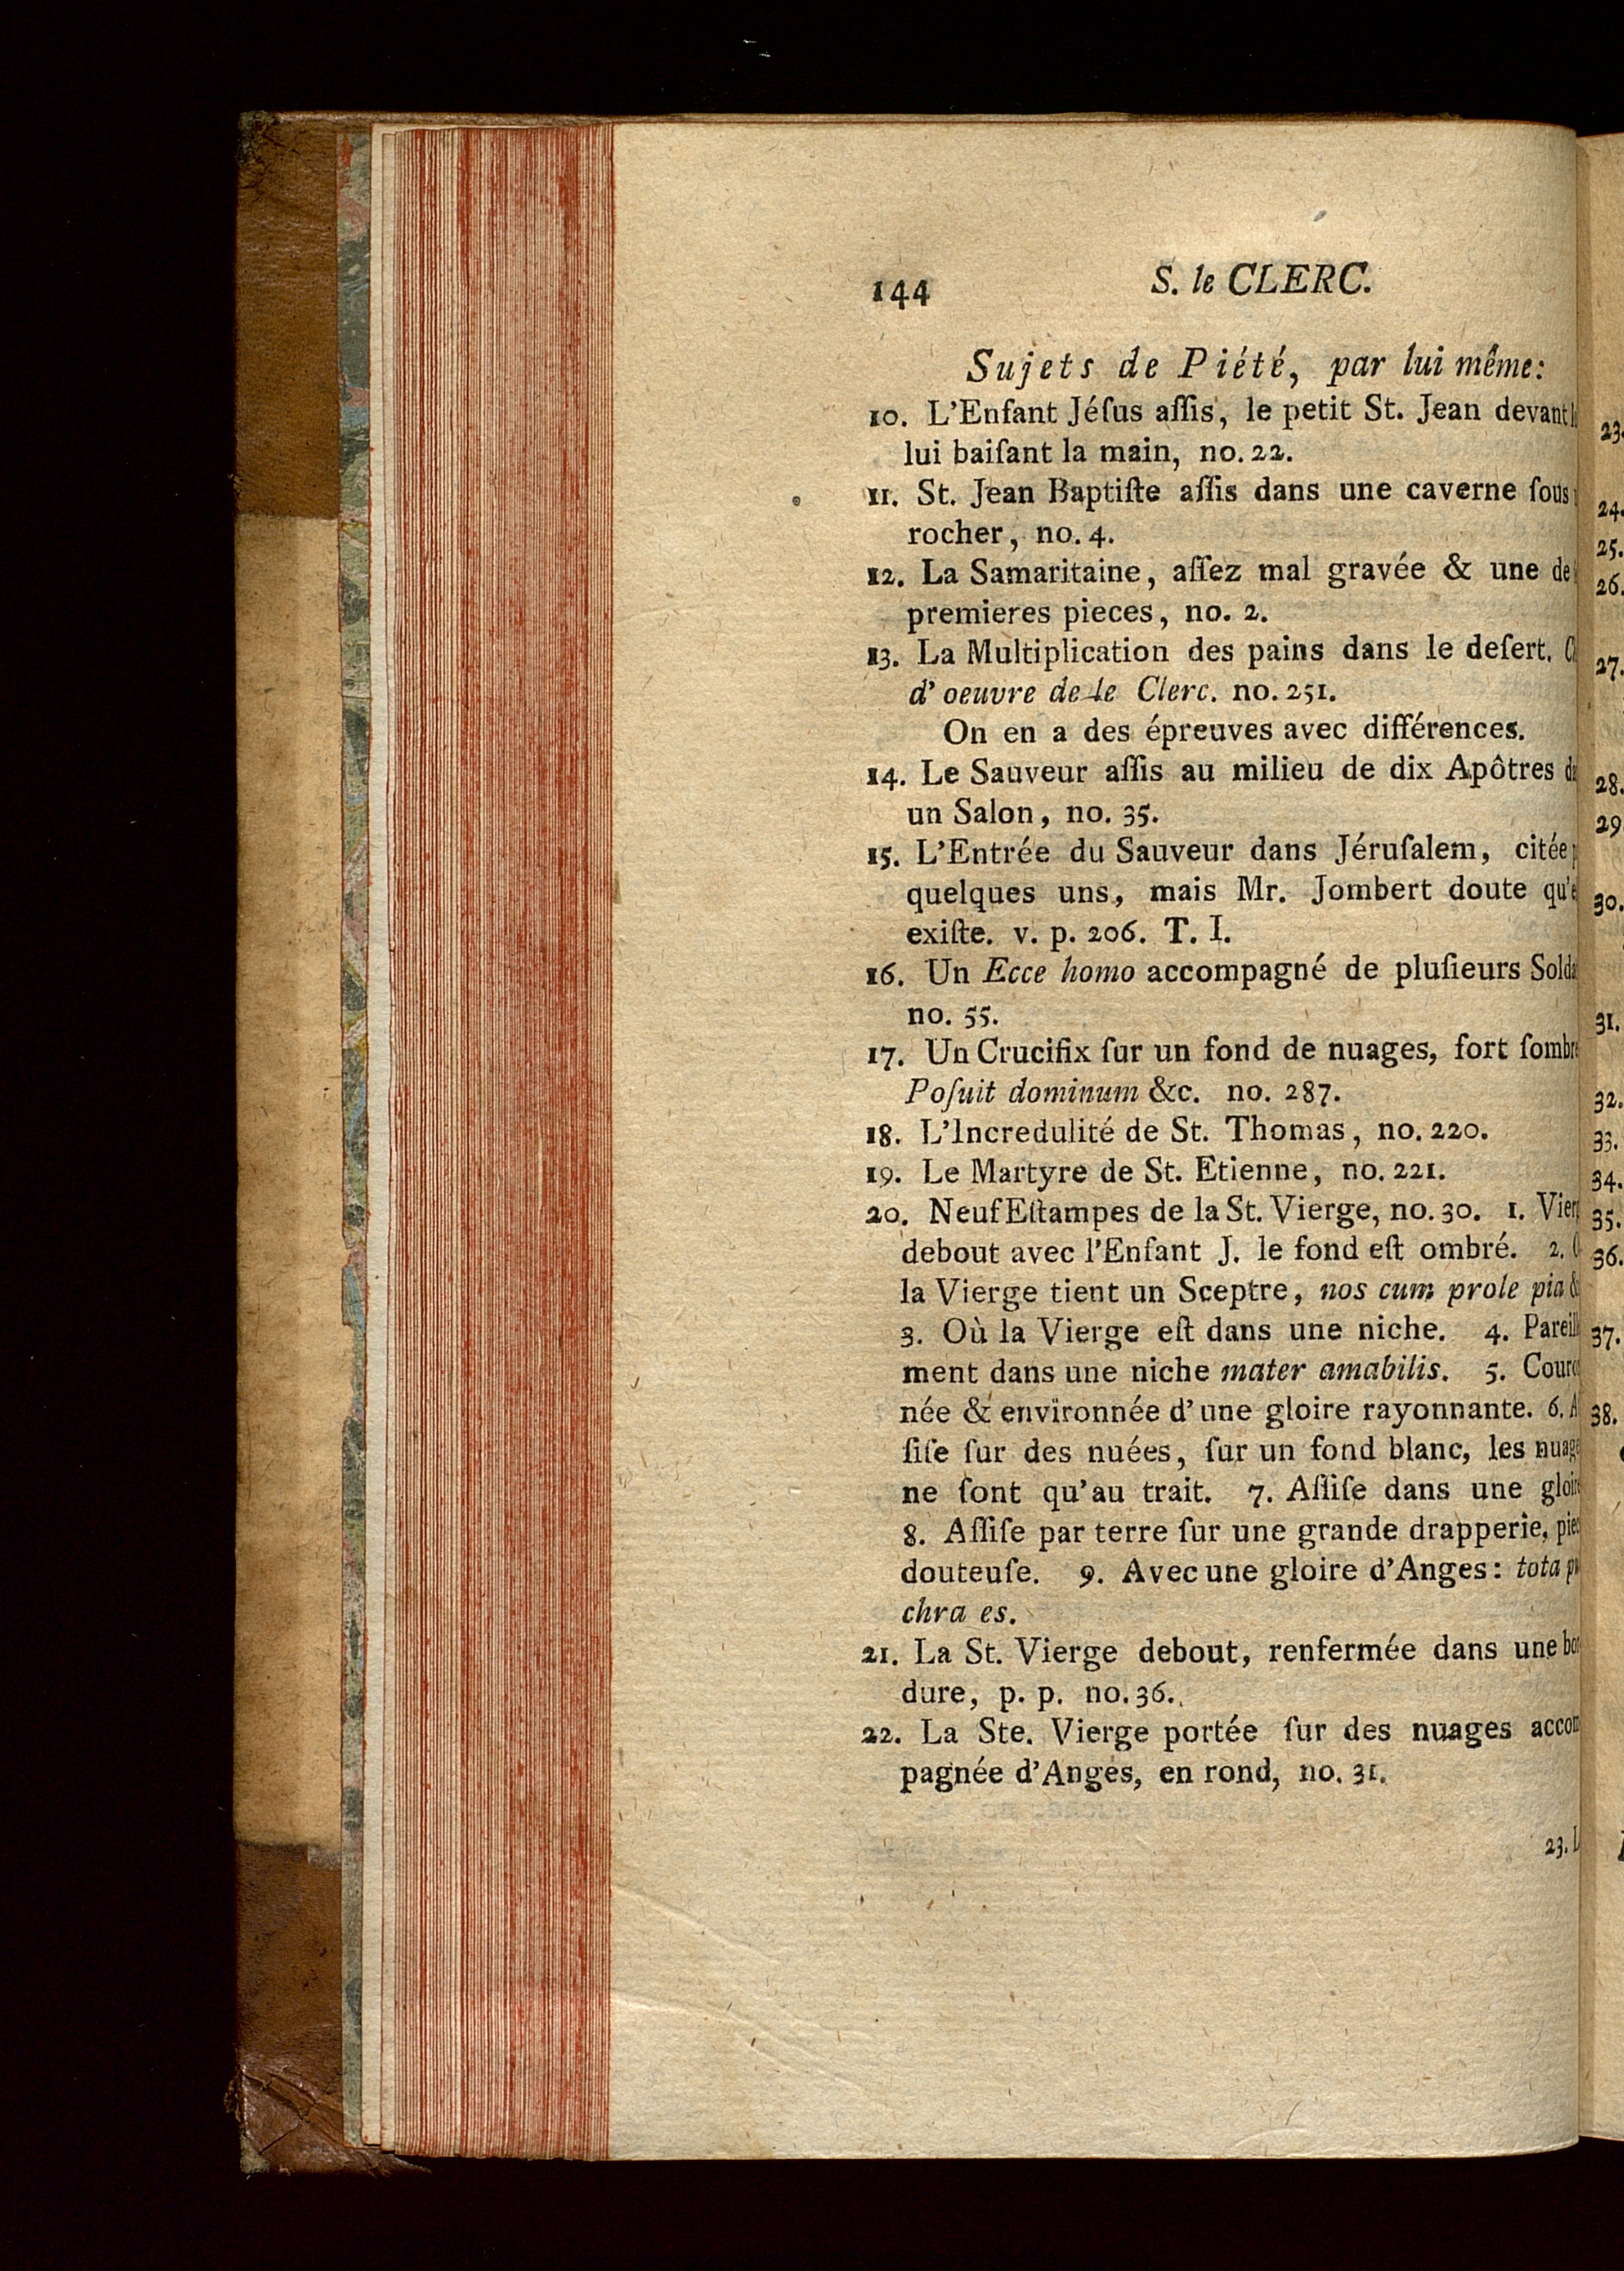 144
S. le CLERC.
Sujets de Piété, par lui même:
10. L'Enfant Jéſus aſſis, le petit St. Jean devant
lui baiſant la main, no. 22.
11. St. Jean Baptiſte aſſis dans une caverne ſous
rocher, no. 4.
12. La Samaritaine, aſſez mal gravée & une de
premieres pieces, no. 2.
13. La Multiplication des pains dans le deſert.
d'oeuvre de le Clerc. no. 251.
On en a des épreuves avec différences.
14. Le Sauveur aſſis au milieu de dix Apôtres
un Salon, no. 35.
15. L'Entrée du Sauveur dans Jéruſalem, citée
quelques uns, mais Mr. Jombert doute
exiſte. v. p. 206. T. I.
16. Un Ecce homo accompagné de pluſieurs
no. 55.
17. Un Crucifix ſur un fond de nuages, fort ſombre
Poſuit dominum &c. no. 287.
18. L'Incredulité de St. Thomas, no. 220.
19. Le Martyre de St. Etienne, no. 221.
20. Neuf Eſtampes de la St. Vierge, no. 30. 1.
debout avec l'Enfant J. le fond eſt ombré. 2.
la Vierge tient un Sceptre, nos cum prole pia
3. Où la Vierge eſt dans une niche. 4.
ment dans une niche mater amabilis. 5.
née & environnée d'une gloire rayonnante. 6.
ſiſe ſur des nuées, ſur un fond blanc, les
ne ſont qu'au trait. 7. Aſſiſe dans une gloire
8. Aſſiſe par terre ſur une grande drapperie,
douteuſe. 9. Avec une gloire d'Anges: tota
chra es.
21. La St. Vierge debout, renfermée dans une
dure, p. p. no. 36.
22. La Ste. Vierge portée ſur des nuages accom
pagnée d'Anges, en rond, no. 31.
23.
23.
24.
25.
26.
27.
28.
29
30.
31.
32.
33.
34.
35.
36.
37.
38.